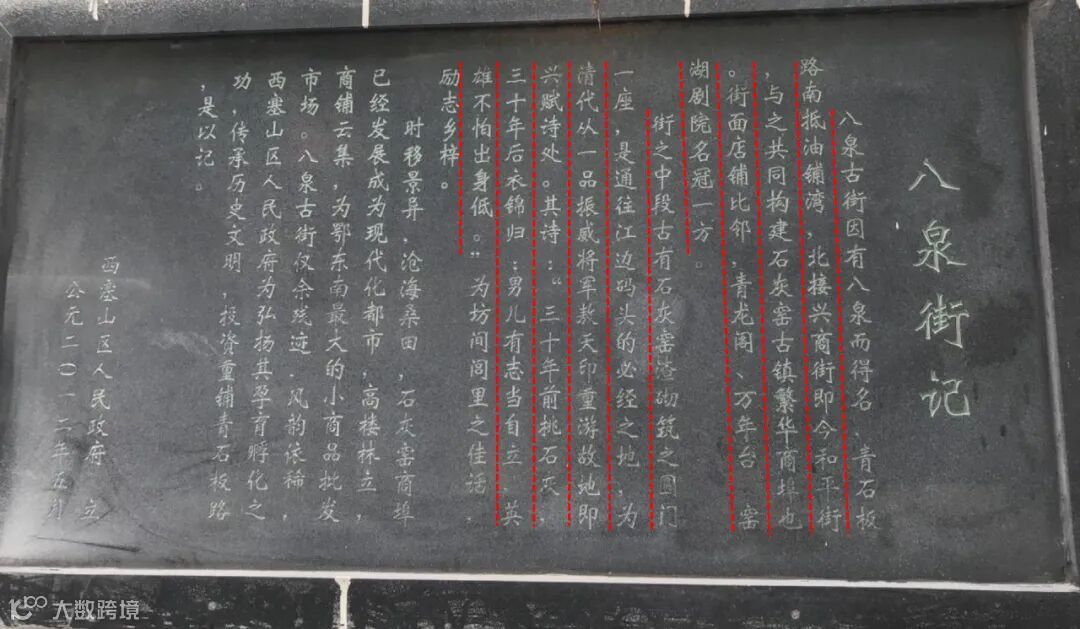 八泉街记
八泉古街因有八泉而得名、青石板
路南抵油铺湾，北接兴商街即今和平街
，与之共同构建石灰窑古镇繁华商埠也
。街面店铺比邻，青龙阁、万年台、窑
湖剧院名冠一方。
街之中段古有石灰窑渣砌筑之圆门
一座，是通往江边码头的必经之地，为
清代从一品振威将军敖天印重游故地即
兴赋诗处。其诗：“三十年前挑石灰，
三十年后衣锦归；男儿有志当自立，英
雄不怕出身低。”为坊间闾里之佳话，
励志乡梓。
时移景异，沧海桑田，石灰窑商埠
已经发展成为现代化都市，高楼林立，
商铺云集，为鄂东南最大的小商品批发
市场。八泉古街仅余残迹，风韵依稀，
西塞山区人民政府为弘扬其孕育孵化之
功，传承历史文明，投资重铺青石板路
，是以记。
西塞山区人民政府 立
公元二〇一二年五月
大数跨境